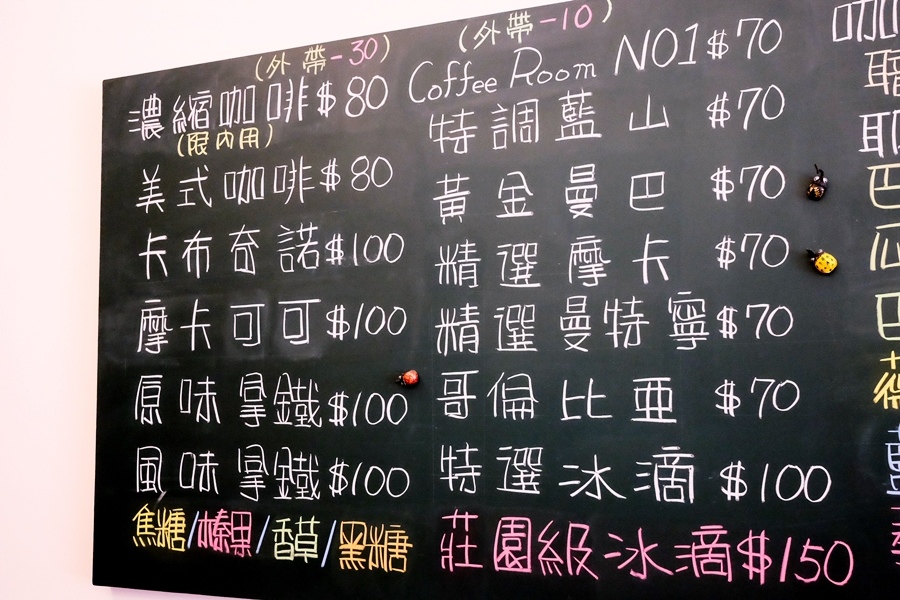 (外帶-30)
濃縮咖啡$80
(限內用)
美式咖啡$80
卡布奇諾$100
摩卡可可$100
原味拿鐵$100
風味拿鐵$100
焦糖/榛果/香草/黑糖
(外帶-10)
Coffee Room NO1$70
特調藍山 $70
黃金曼巴 $70
精選摩卡 $70
精選曼特寧$70
哥倫比亞 $70
特選冰滴 $100
莊園級冰滴$150
咖
耶
巴
瓜
巴